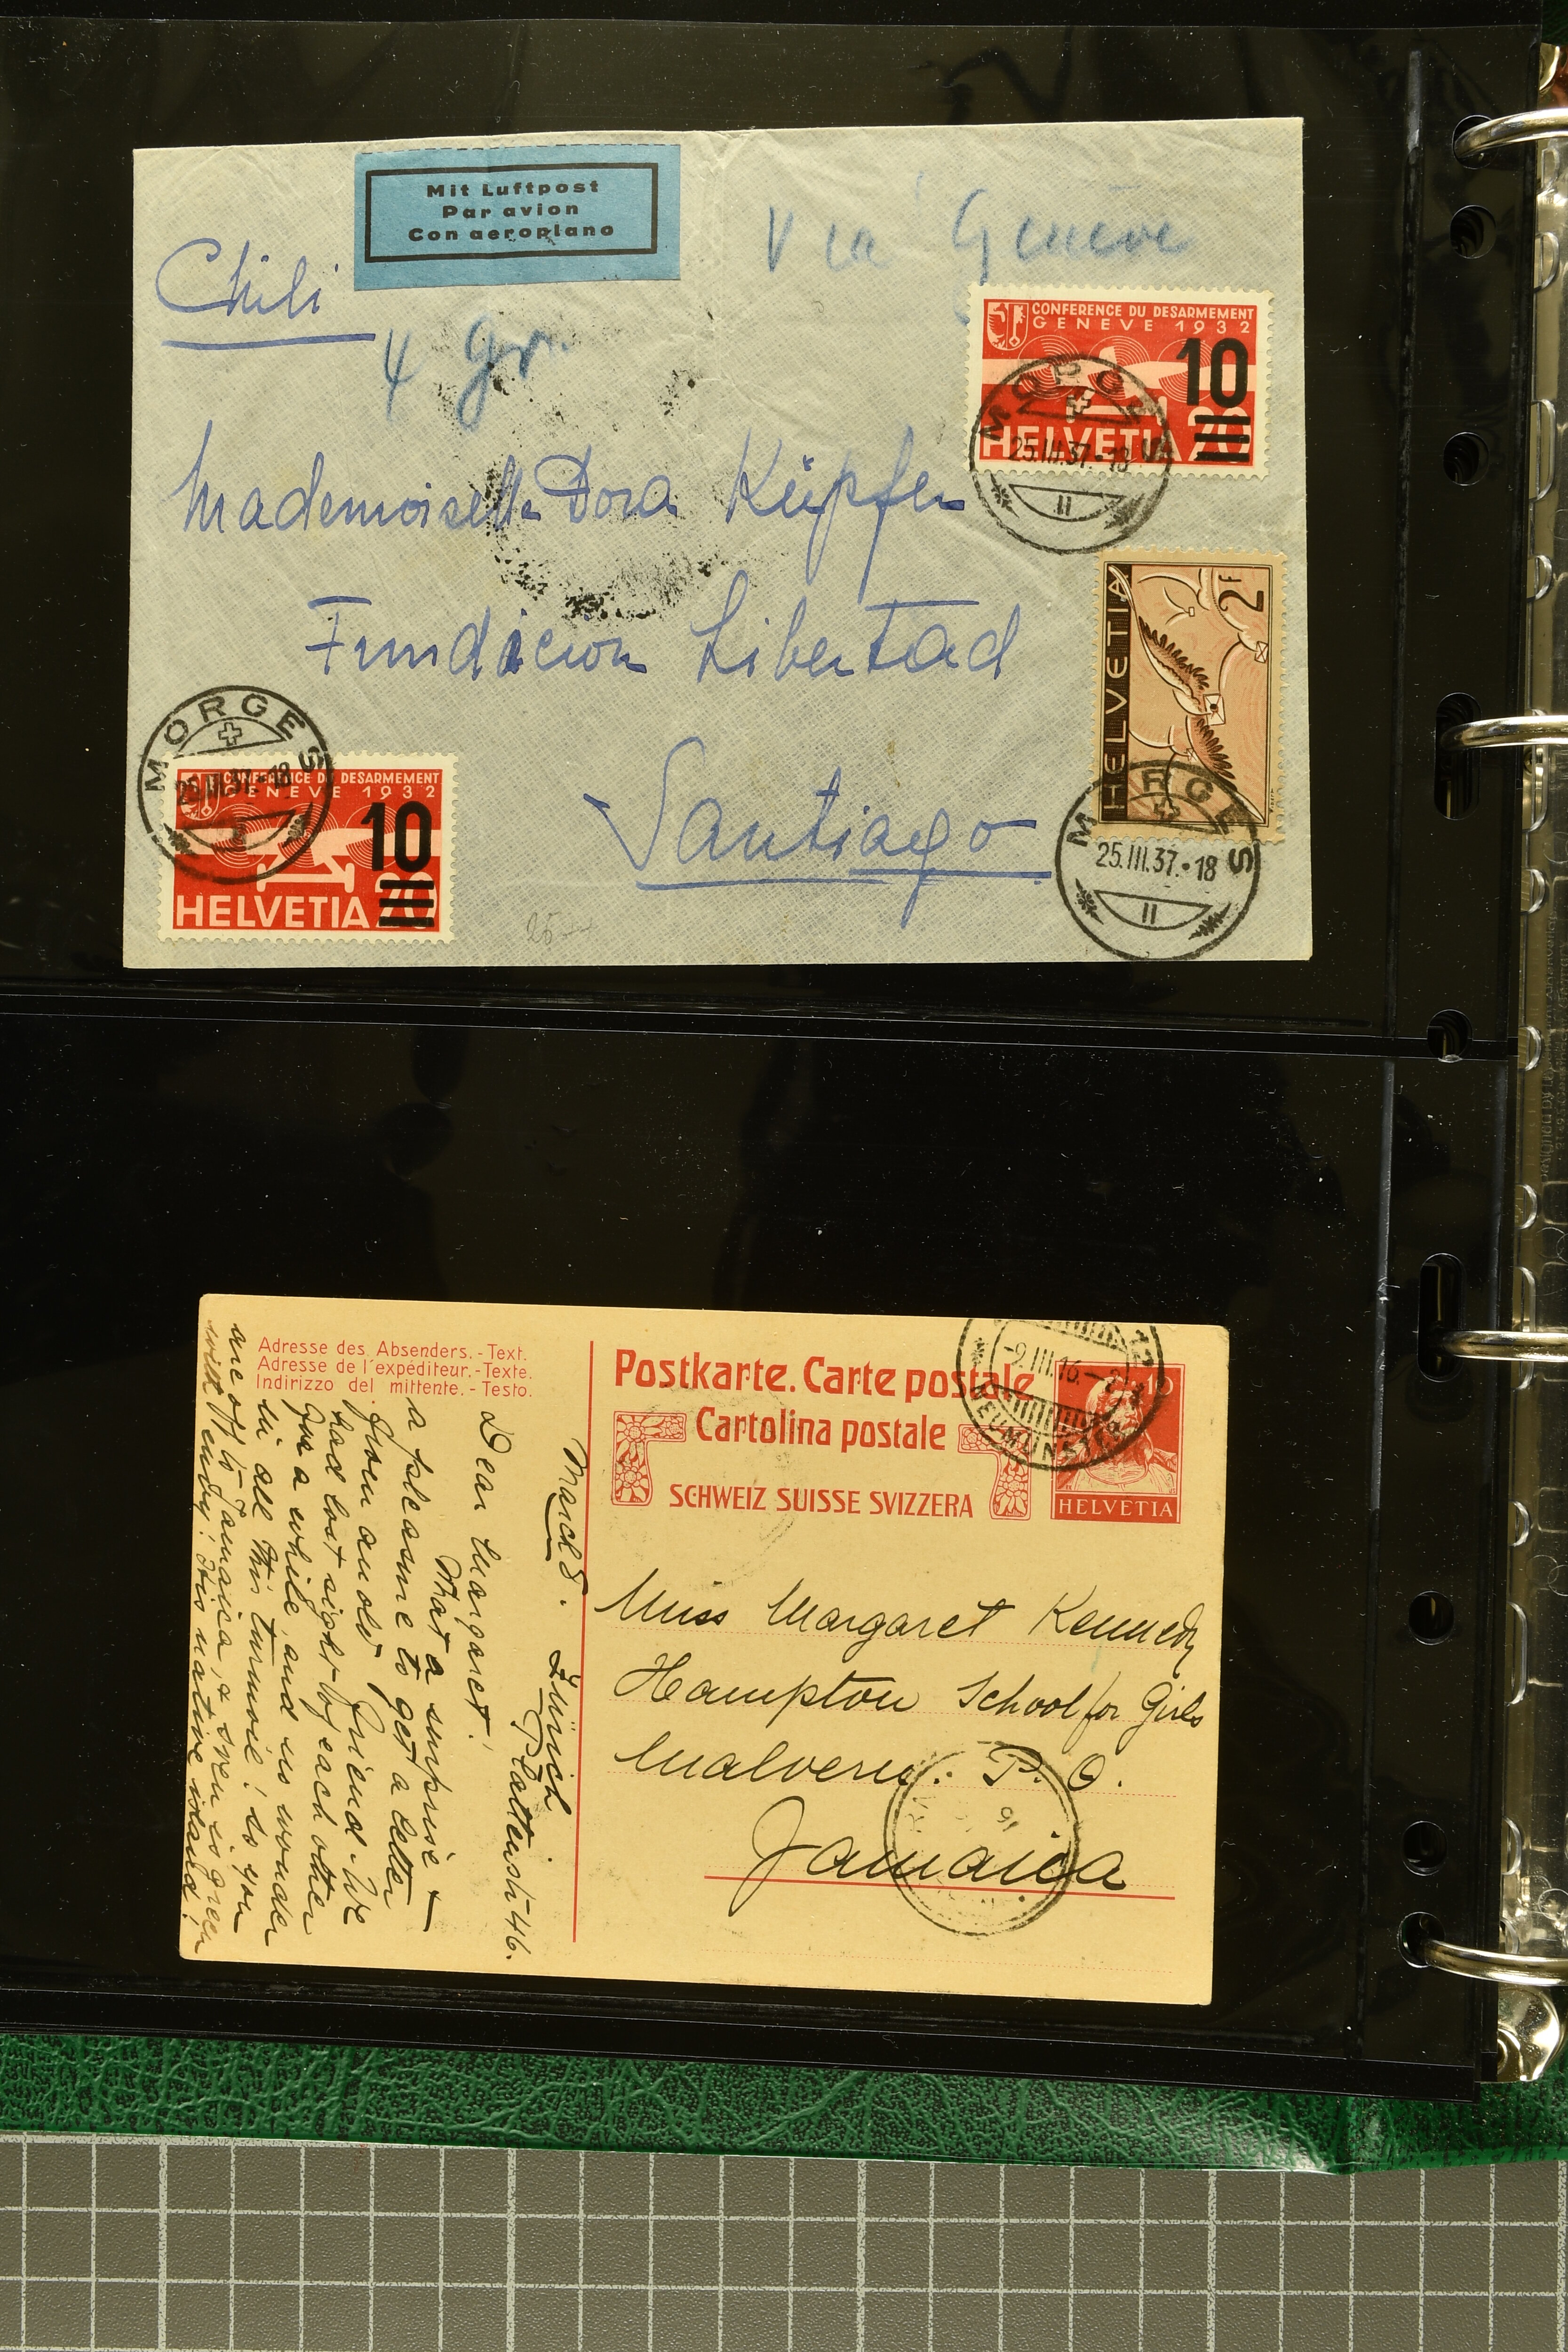 Mit Luftpost
Par avion
Con aeroplano
Via Genève
Chili
4 gr.
CONFERENCE DU DESARMEMENT
GENEVE 1932
10
HELVETIA 20
MORGES
25.III.37.-18
II
Mademoiselle Dora Küpfer
Fundicion Libertad
Santiago
HELVETIA
2 F
MORGES
25.III.37.-18
II
MORGES
25.III.37.-18
CONFERENCE DU DESARMEMENT
GENEVE 1932
10
HELVETIA 20
25
Adresse des Absenders.-Text.
Adresse de l'expéditeur.-Texte.
Indirizzo del mittente.-Testo.
Postkarte. Carte postale
Cartolina postale
SCHWEIZ SUISSE SVIZZERA
-9.III.16.
NEUMÜNSTER
10
HELVETIA
Miss Margaret Kennedy
Hampton School for Girls
Malvern. P. O.
Jamaica
March 8. Zürich
Plattenstr 46.
Dear Margaret,
What a surprise &
a pleasure to get a letter
from an old friend. We
had lost sight of each other
for a while, and no wonder
in all this turmoil! So you
are off to Jamaica, &
with envy! His native island!